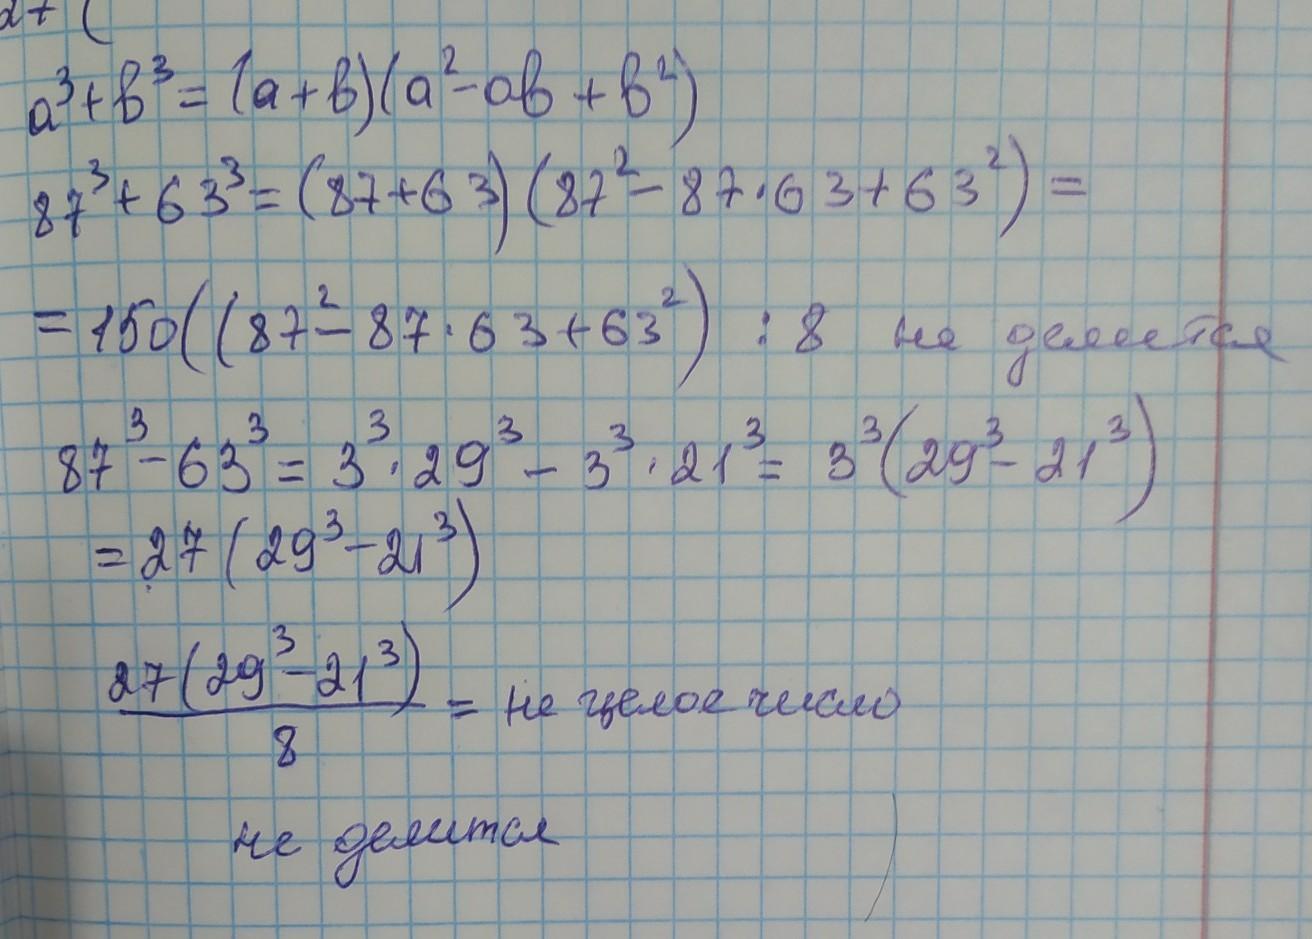 a³+b³=(a+b)(a²-ab+b²)
87³+63³=(87+63)(87²-87·63+63²)=
=150((87²-87·63+63²) :8 не делится
87³-63³=3³·29³-3³·21³=3³(29³-21³)
=27(29³-21³)
27(29³-21³)
8
= не целое число
не делится